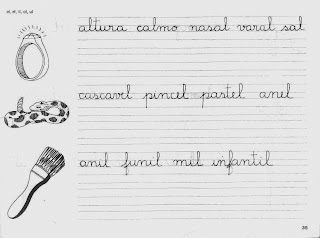 al, el, il, ol, ul
altura calmo nasal varal sal
cascavel pincel pastel anel
anil funil mil infantil